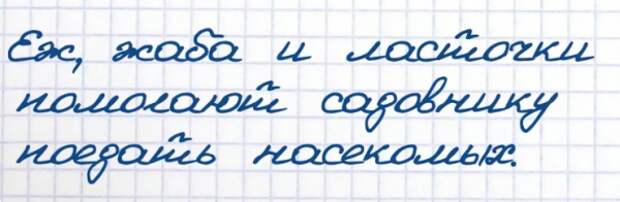 Еж, жаба и ласточки
помогают садовнику
поедать насекомых.